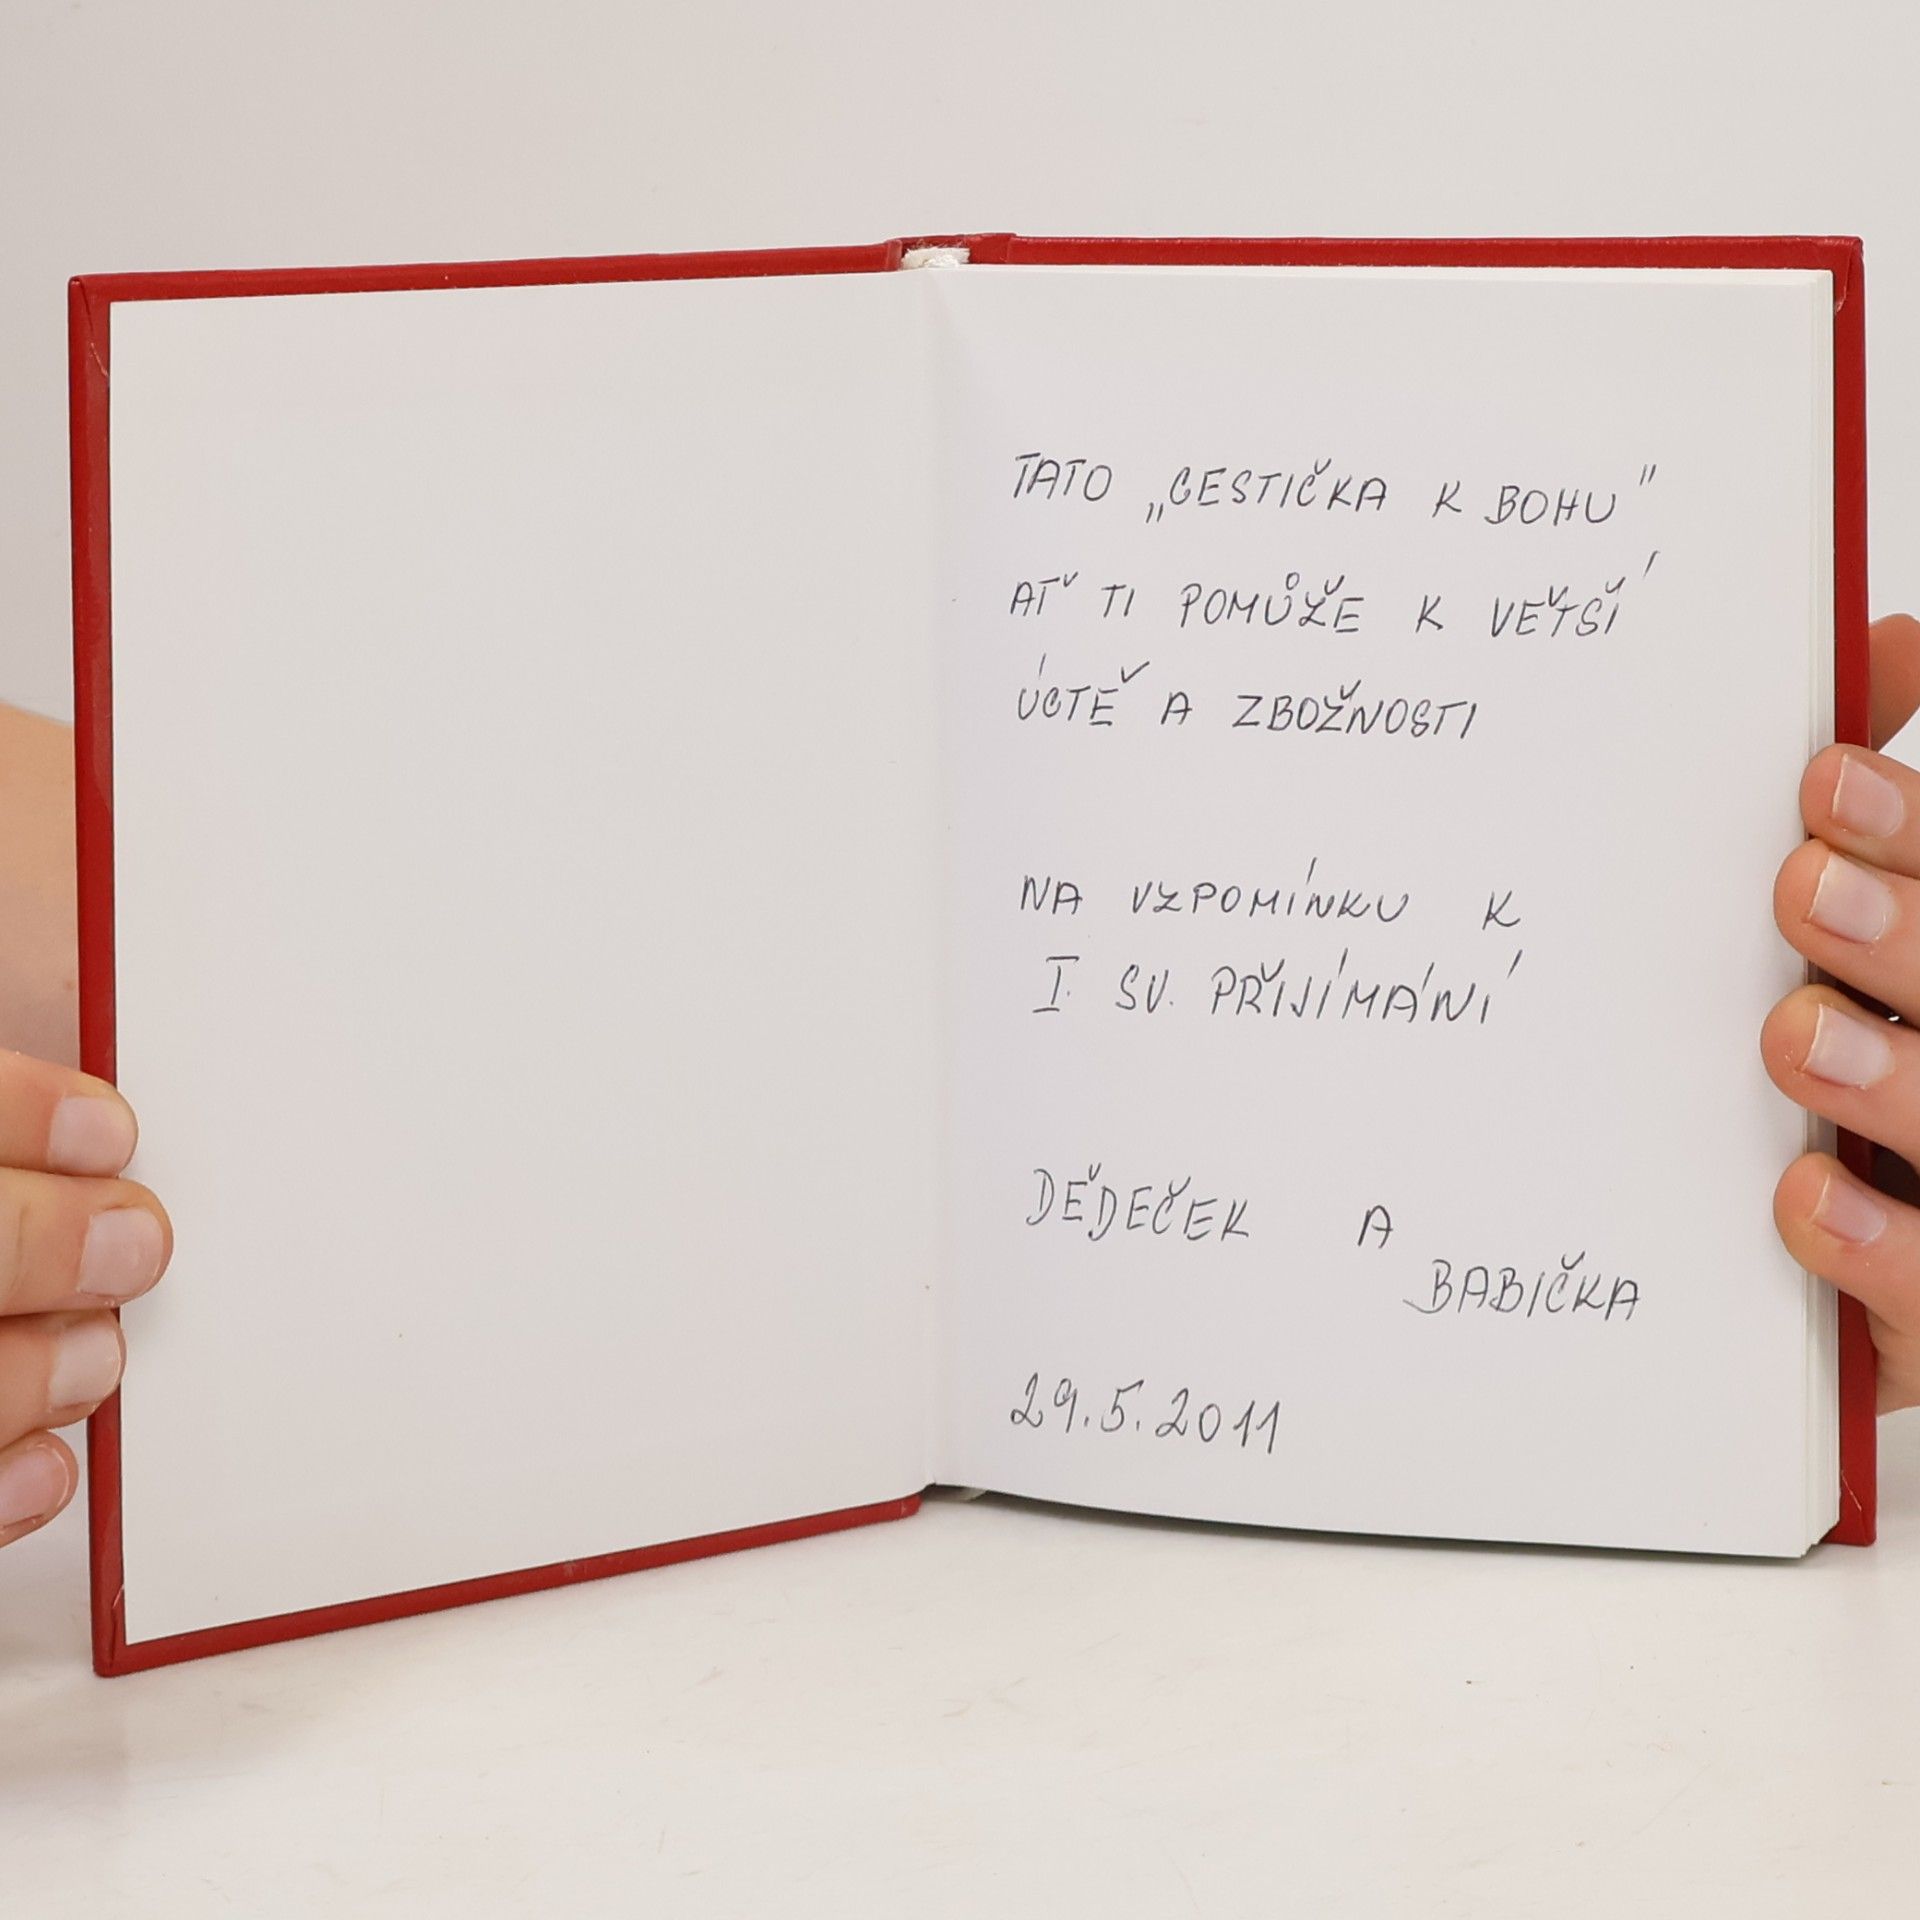 TATO „CESTIČKA K BOHU"
AŤ TI POMŮŽE K VĚTŠÍ
ÚCTĚ A ZBOŽNOSTI
NA VZPOMÍNKU K
I. SV. PŘIJÍMÁNÍ
DĚDEČEK A
BABIČKA
29.5.2011